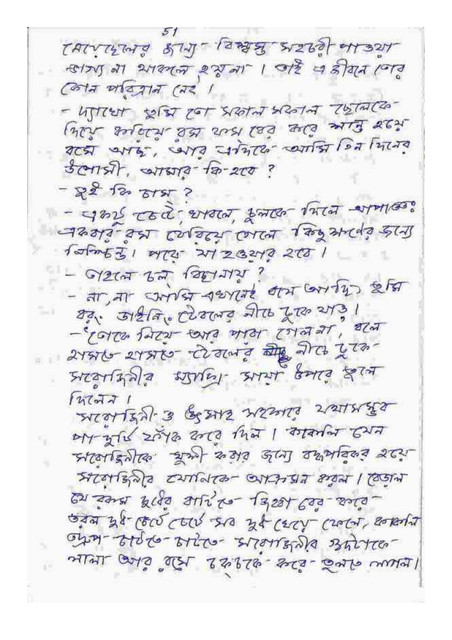 51
মেয়েছেলের জন্যে বিশ্বস্ত সহচরী পাওয়া
ভাগ্য না থাকলে হয়না । তাই এ জীবনে তোর
কোন পরিত্রান নেই ।
- দ্যাখো তুমি তো সকাল সকাল ছেলেকে
দিয়ে করিয়ে রস ফস বের করে শান্ত হয়ে
বসে আছ, আর এদিকে আমি তিন দিনের
উপোসী, আমার কি হবে ?
- তুই কি চাস ?
- একটু চেটে, খাবলে, চুলকে দিলে আপাততঃ
একবার রস বেরিয়ে গেলে কিছুক্ষণের জন্যে
নিশ্চিন্ত। পরে যা হওয়ার হবে ।
- তাহলে চল বিছানায় ?
- না, না আমি এখানেই বসে আছি, তুমি
বরং ডাইনিং টেবলের নীচে ঢুকে যাও ।
- তোকে নিয়ে আর পারা গেলনা, বলে
হাসতে হাসতে টেবলের নীচে ঢুকে
সরোজিনীর ম্যাক্সি সায়া উপরে তুলে
দিলেন ।
সরোজিনী ও উৎসাহ সহকারে যথাসম্ভব
পা দুটি ফাঁক করে দিল । কাকলি যেন
সরোজিনীকে খুশী করার জন্যে বদ্ধপরিকর হয়ে
সরোজিনীর যোনিকে আক্রমন করল । বেড়াল
যে রকম দুধের বাটিতে জিভ বের করে
তরল দুধ চেটে চেটে সব দুধ খেয়ে ফেলে, কাকলি
তদ্রূপ চাটতে চাটতে সরোজিনীর গুদটাকে
লালা আর রসে চকচকে করে তুলতে লাগল ।